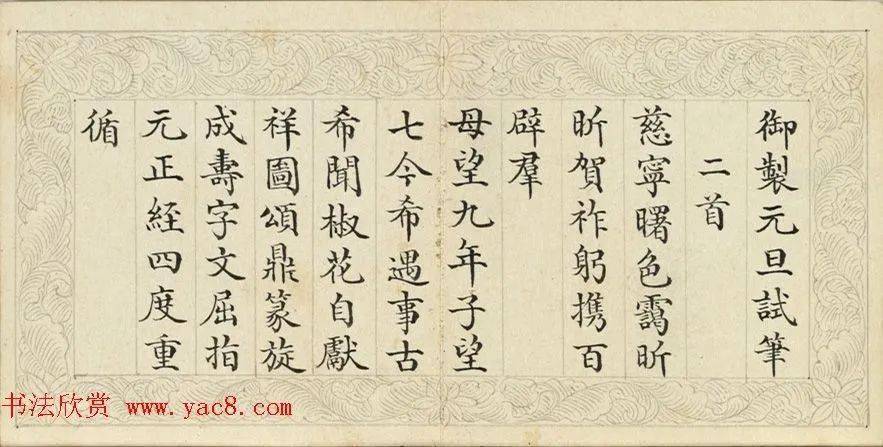 御製元旦試筆
二首
慈寧曙色靄昕
昕賀祚躬攜百
辟羣
母望九年子望
七今希遇事古
希聞椒花自獻
祥圖頌鼎篆旋
成壽字文屈指
元正經四度重
循
书法欣赏 www.yac8.com